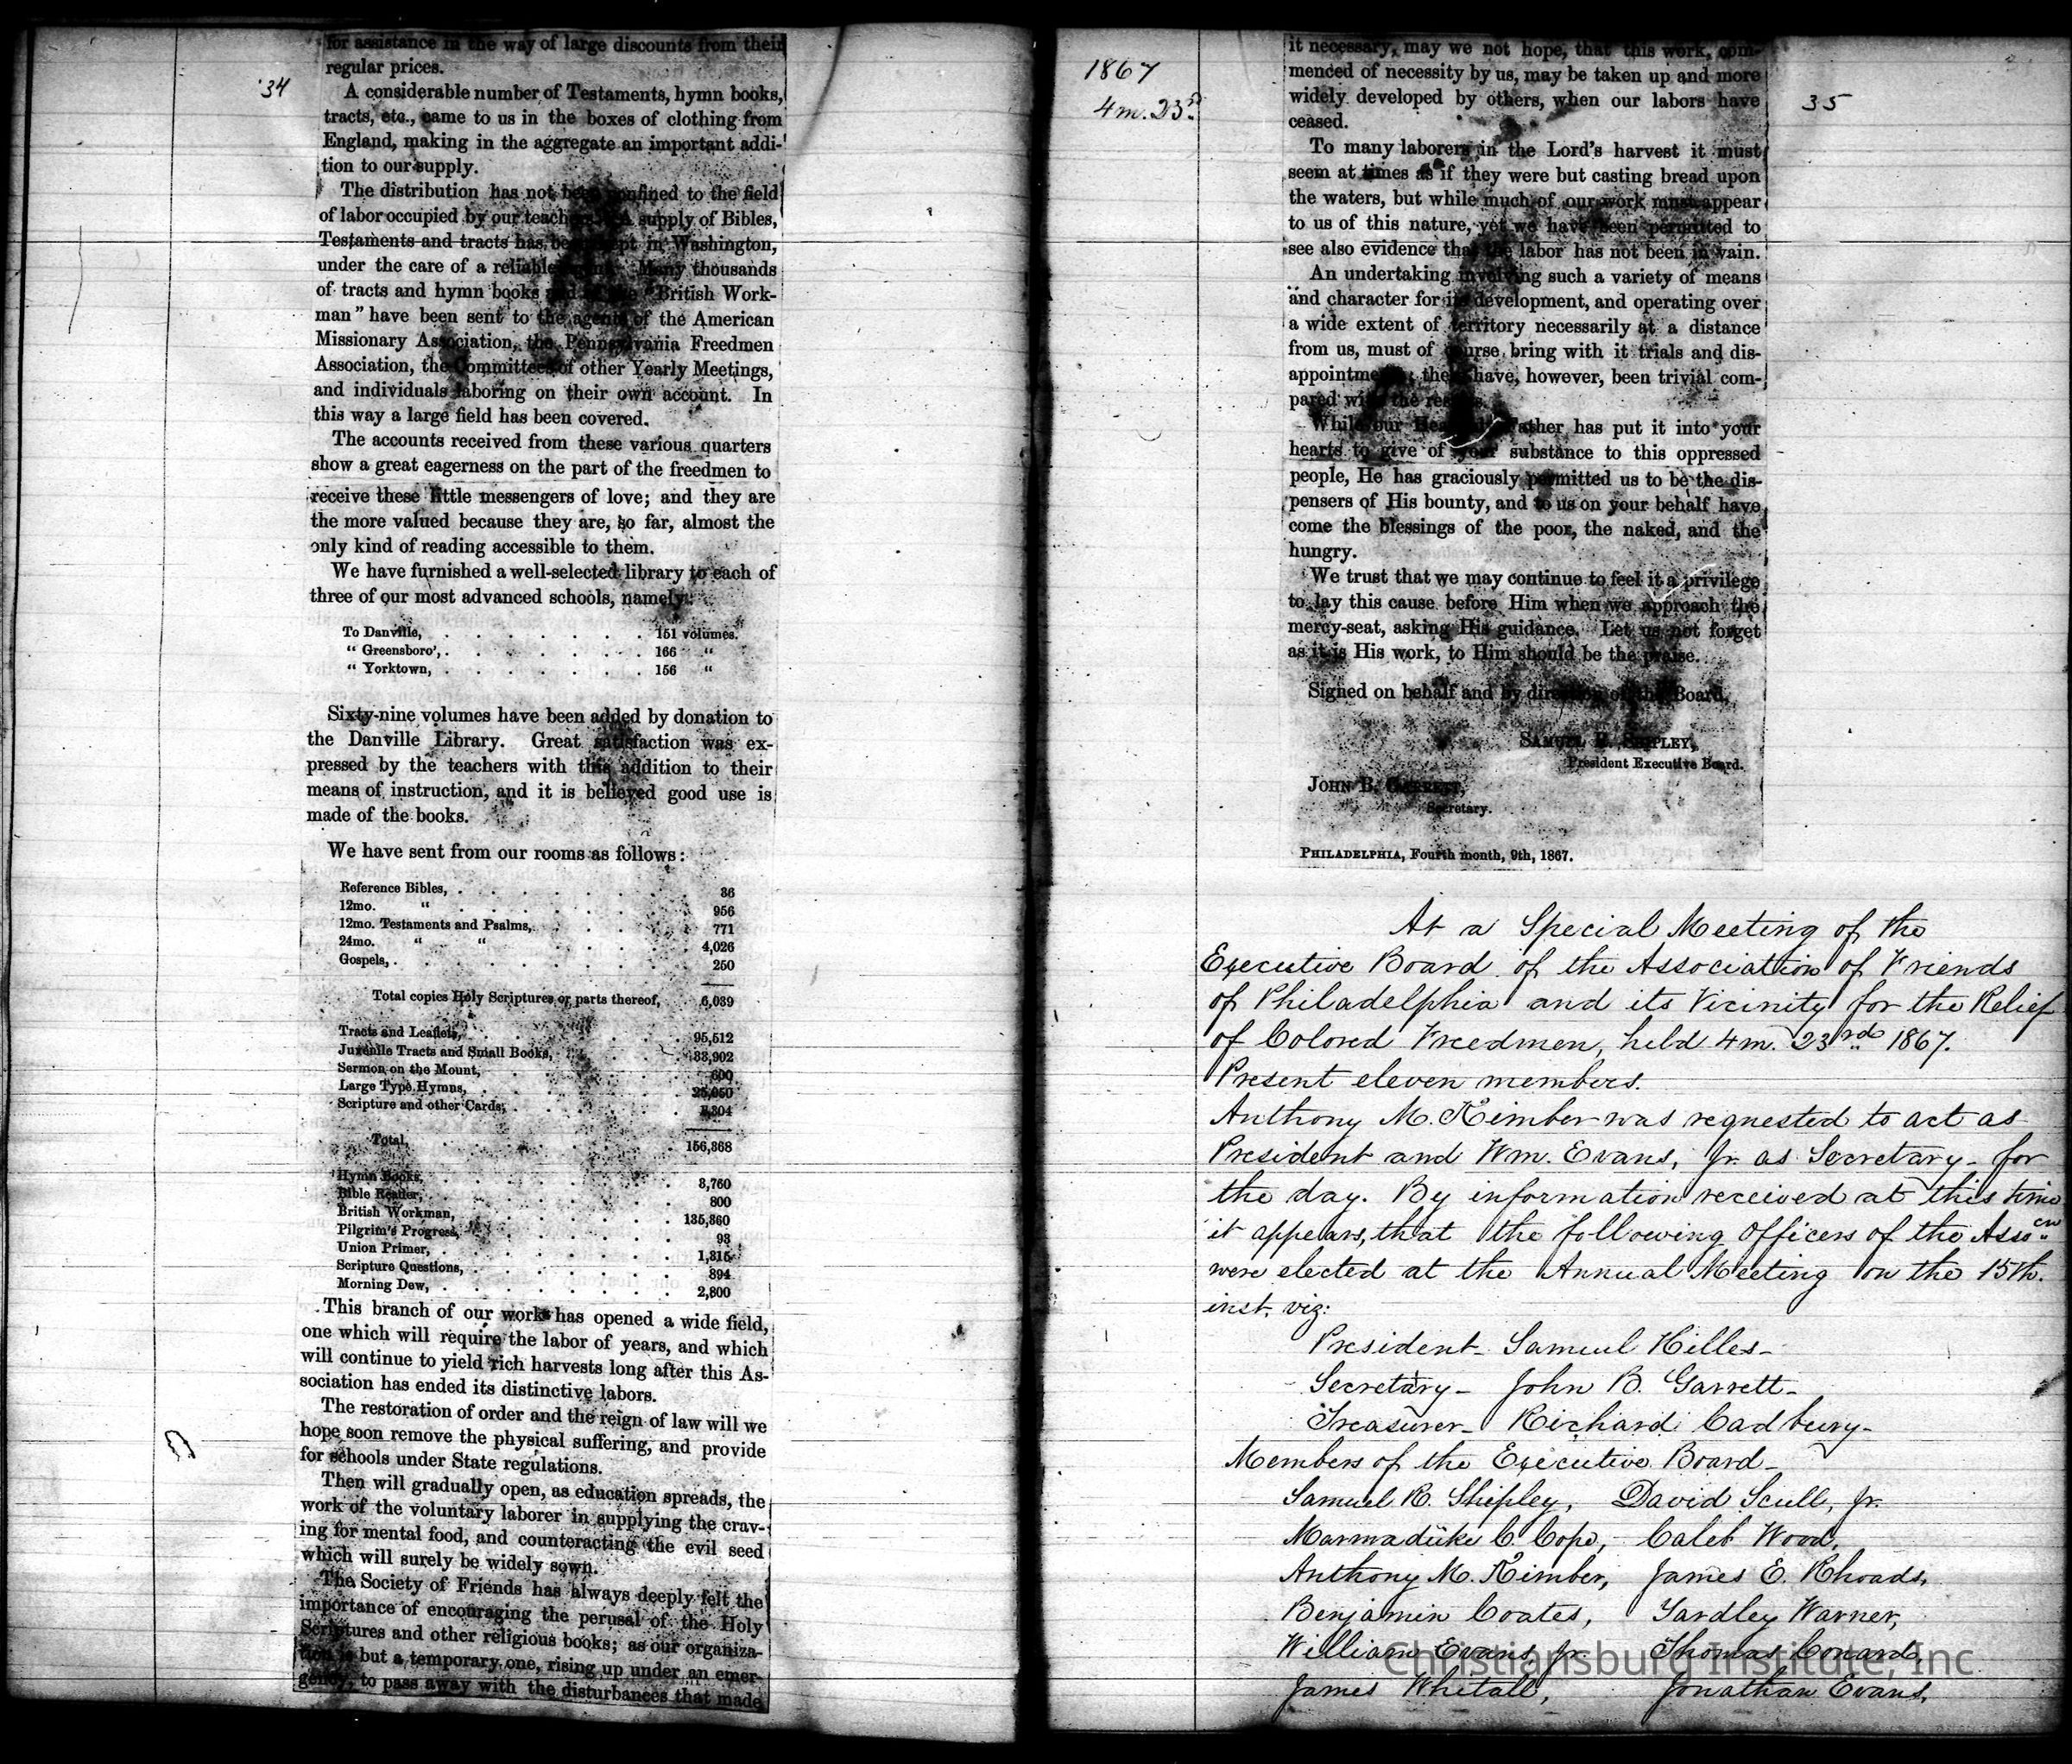 34
for assistance in the way of large discounts from their
regular prices.
A considerable number of Testaments, hymn books,
tracts, etc., came to us in the boxes of clothing from
England, making in the aggregate an important addi-
tion to our supply.
The distribution has not been confined to the field
of labor occupied by our teachers. A supply of Bibles,
Testaments and tracts has been kept in Washington,
under the care of a reliable agent. Many thousands
of tracts and hymn books and of the "British Work-
man" have been sent to the agents of the American
Missionary Association, the Pennsylvania Freedmen
Association, the Committees of other Yearly Meetings,
and individuals laboring on their own account. In
this way a large field has been covered.
The accounts received from these various quarters
show a great eagerness on the part of the freedmen to
receive these little messengers of love; and they are
the more valued because they are, so far, almost the
only kind of reading accessible to them.
We have furnished a well-selected library to each of
three of our most advanced schools, namely:
To Danville, . . . . . . . 151 volumes.
" Greensboro', . . . . . . . 166 "
" Yorktown, . . . . . . . 156 "
Sixty-nine volumes have been added by donation to
the Danville Library. Great satisfaction was ex-
pressed by the teachers with this addition to their
means of instruction, and it is believed good use is
made of the books.
We have sent from our rooms as follows:
Reference Bibles, . . . . . . . 36
12mo. " . . . . . . . 956
12mo. Testaments and Psalms, . . . . . 771
24mo. " " . . . . . 4,026
Gospels, . . . . . . . . 250
Total copies Holy Scriptures or parts thereof, 6,039
Tracts and Leaflets, . . . . . . 95,512
Juvenile Tracts and Small Books, . . . . 33,902
Sermon on the Mount, . . . . . . 600
Large Type Hymns, . . . . . . 25,050
Scripture and other Cards, . . . . .
Total, . . . . . . . . 156,368
Hymn Books, . . . . . . . 3,760
Bible Reader, . . . . . . . 800
British Workman, . . . . . . 135,360
Pilgrim's Progress, . . . . . . 93
Union Primer, . . . . . . . 1,315
Scripture Questions, . . . . . . 894
Morning Dew, . . . . . . . 2,800
This branch of our work has opened a wide field,
one which will require the labor of years, and which
will continue to yield rich harvests long after this As-
sociation has ended its distinctive labors.
The restoration of order and the reign of law will we
hope soon remove the physical suffering, and provide
for schools under State regulations.
Then will gradually open, as education spreads, the
work of the voluntary laborer in supplying the crav-
ing for mental food, and counteracting the evil seed
which will surely be widely sown.
The Society of Friends has always deeply felt the
importance of encouraging the perusal of the Holy
Scriptures and other religious books; as our organiza-
tion is but a temporary one, rising up under an emer-
gency, to pass away with the disturbances that made
1867
4m. 23d
35
it necessary, may we not hope, that this work, com-
menced of necessity by us, may be taken up and more
widely developed by others, when our labors have
ceased.
To many laborers in the Lord's harvest it must
seem at times as if they were but casting bread upon
the waters, but while much of our work must appear
to us of this nature, yet we have been permitted to
see also evidence that the labor has not been in vain.
An undertaking involving such a variety of means
and character for its development, and operating over
a wide extent of territory necessarily at a distance
from us, must of course bring with it trials and dis-
appointments; they have, however, been trivial com-
pared with the results.
While our Heavenly Father has put it into your
hearts to give of your substance to this oppressed
people, He has graciously permitted us to be the dis-
pensers of His bounty, and to us on your behalf have
come the blessings of the poor, the naked, and the
hungry.
We trust that we may continue to feel it a privilege
to lay this cause before Him when we approach the
mercy-seat, asking His guidance. Let us not forget
as it is His work, to Him should be the praise.
Signed on behalf and by direction of the Board,
SAMUEL R. SHIPLEY,
President Executive Board.
JOHN B. GARRETT,
Secretary.
PHILADELPHIA, Fourth month, 9th, 1867.
At a Special Meeting of the
Executive Board of the Association of Friends
of Philadelphia and its Vicinity for the Relief
of Colored Freedmen, held 4m. 23rd 1867.
Present eleven members.
Anthony M. Kimber was requested to act as
President and Wm. Evans, Jr. as Secretary- for
the day. By information received at this time
it appears, that the following Officers of the Assocn
were elected at the Annual Meeting on the 15th.
inst. viz:
President- Samuel Hilles-
Secretary- John B. Garrett-
Treasurer- Richard Cadbury-
Members of the Executive Board-
Samuel R. Shipley, David Scull, Jr.
Marmaduke C. Cope, Caleb Wood,
Anthony M. Kimber, James E. Rhoads,
Benjamin Coates, Yardley Warner,
William Evans, Jr. Thomas Conard,
James Whitall, Jonathan Evans,
Christiansburg Institute, Inc